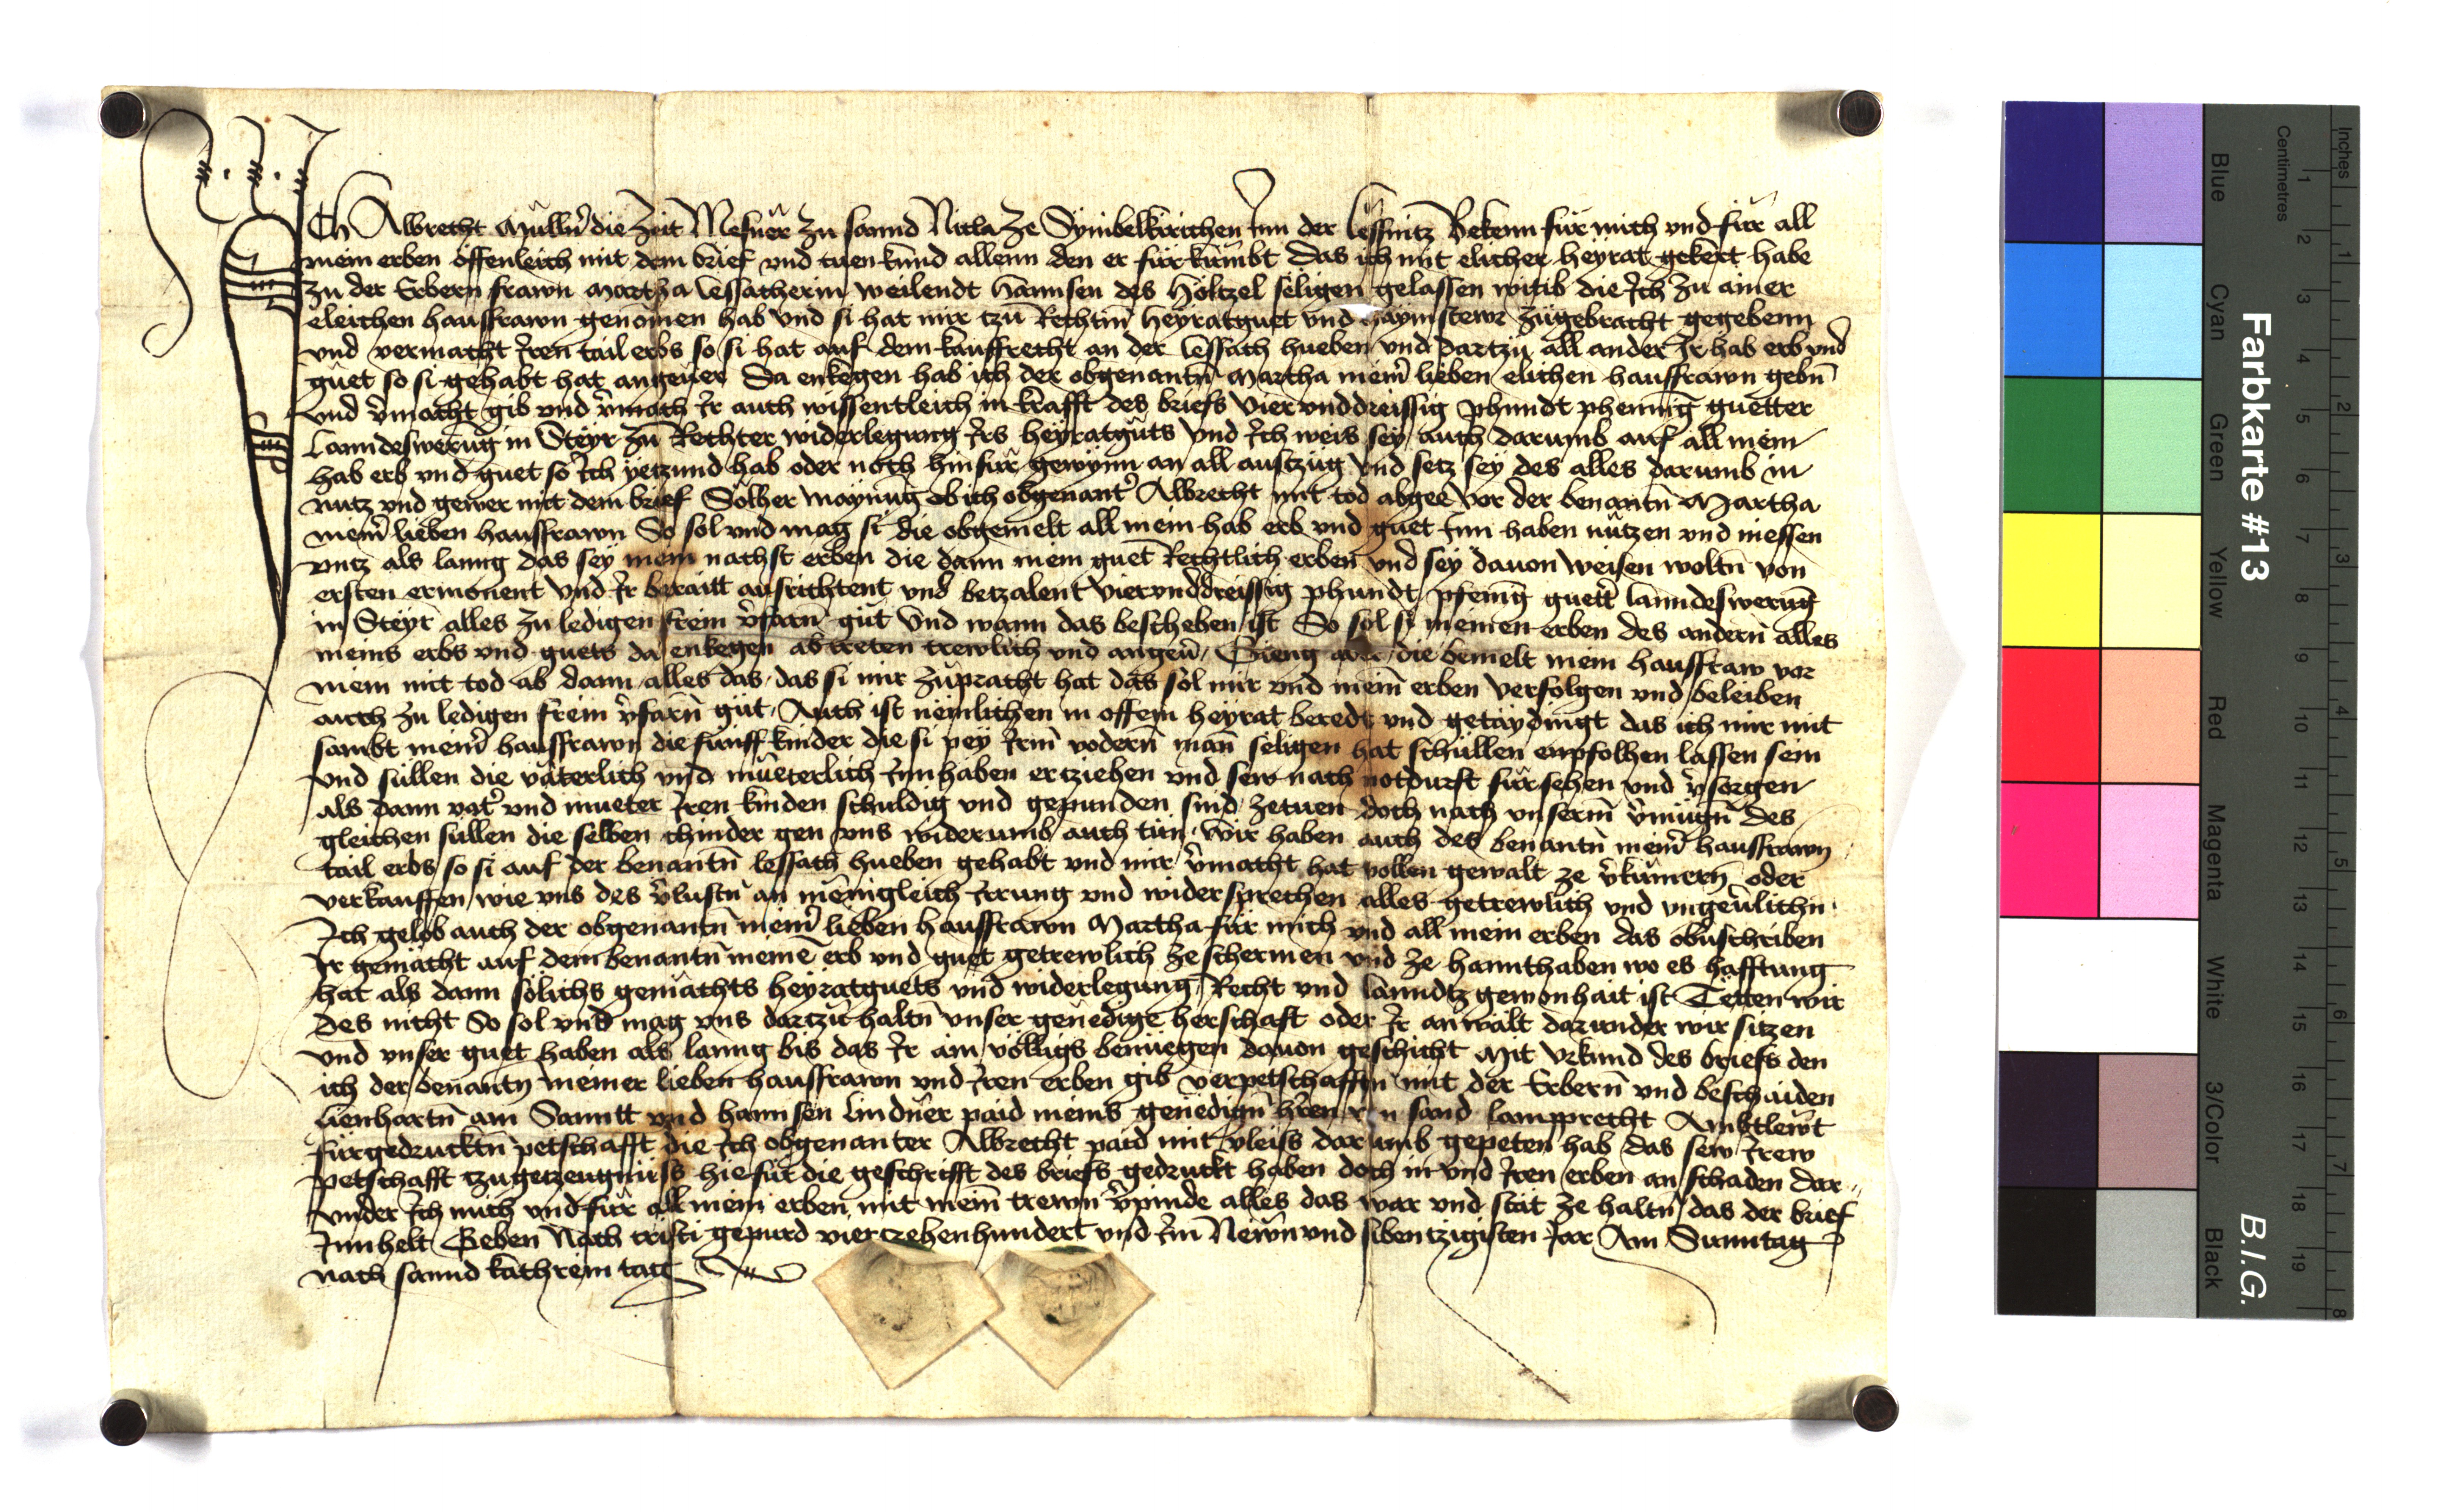 Ich Albrecht Müllner die Zeit Mesner zu sannd Nicla ze Dymbelkirichen Inn der lessnitz Bekenn für mich vnd für all
mein erben offenleich mit dem brief vnd tuen kund allenn den er fürkumbt Das ich mit elicher heyrat gekert habe
zu der Erbern frawn Martha lessacherin weilendt Hannsen des Höltzel seligen gelassen witib die Ich zu ainer
eleichen hausfrawn genomen hab vnd si hat mir tzu Rechtm̄ heyratguet vnd haymstewr zugebracht gegebenn
vnd vermacht Iren tail erbs so si hat auf dem kauffrecht an der lessach hueben vnd dartzu all ander Ir hab erb vnd
guet so si gehabt hat angeuer Da enkegen hab ich der obgenantn̄ Martha meinr̄ lieben elichen hausfrawn gebn̄
vnd v̄macht gib vnd v̄mach Ir auch wissentleich in krafft des briefs vier vnddreissig phundt phenniḡ guetter
lanndeswerūg in Steyr zu Rechter widerlegung Irs heyratguts vnd Ich weis sey auch darumb auf all mein
hab erb vnd guet so Ich yetzund hab oder noch hinfür gewynn an all austzüg vnd setz sey des alles darumb in
nutz vnd gewer mit dem brief Sölher maynūg ob ich obgenantr̄ Albrecht mit tod abgee vor der benantn̄ Martha
meinr̄ lieben hausfrawn So sol vnd mag si die obgemelt all mein hab erb vnd guet Inn haben nützen vnd niessen
vntz als lanng das sey mein nachst erben die dann mein guet Rechtlich erben vnd sey dauon weisen woltn̄ von
ersten ermonent vnd Ir beraitt ausrichtent vnd betzalent vierunddreissig phundt pfeninḡ guettr̄ lanndeswerūg
in Steyr alles zu ledigen freim v̄farn̄ gut Vnd wann das beschehen ist So sol si meinen erben des andern alles
meins erbs vnd guets da enkegen abtreten trewlich vnd angeur̄ Gieng die bemelt mein hausfraw vor
mein mit tod ab dann alles das das si mir zupracht hat das sol mir vnd mein̄ erben verfolgen vnd beleiben
auch zu ledigen freim v̄farn̄ gut Auch ist nemlichen in offem heyrat beredt vnd getaydingt das ich mir mit
sambt meinr̄ hausfrawn die funff kinder die si pey Irm vodern̄ man̄ seligen hat schullen enpfolhen lassen sein
vnd sullen die väterlich vnd müeterlich Innhaben ertziehen vnd sew nach notdurft fürsehen vnd v̄sorgen
als dann vatr̄ vnd mueter Iren kinden schuldig vnd gepunden sind zetuen doch nach vnserm̄ v̄mugn̄ des
gleichen sullen die selben chinder gen vns widerumb auch tun Wir haben auch des benantn̄ meinr̄ hausfrawn
tail erbs so si auf der benantn̄ lessach hueben gehabt vnd mir v̄macht hat vollen gewalt ze v̄kümern̄ oder
verkauffen wie vns des v̄lustn̄ an menigleich Irrung vnd widersprechen alles getrewlich vnd vngeu̇rlichn
Ich gelob auch der obgenantn̄ meinr̄ lieben hausfrawn Martha für mich vnd all mein erben das obn̄schriben
Ir gemächt auf dem benantn̄ meinē erb vnd guet getrewlich ze schermen vnd ze hannthaben wo es hafftung
hat als dann solichs gemächts heyratguets vnd widerlegung Recht vnd lanndtz gewonhait ist Tëtten wir
des nicht So sol vnd mag vns dartzu haltn̄ vnser genedige herschaft oder Ir anwält darunder wir sitzen
vnd vnser guet haben als lanng bis das Ir ain volligs benuegen dauon geschicht Mit vrkund des briefs den
ich der benantn̄ meiner lieben hausfrawn vnd Iren erben gib verpetschafftn̄ mit der Erbern̄ vnd beschaiden
lienhartn̄ am Samitt vnd hannsen lindner paid meins genedign̄ hr̄ren sand lampprecht Ambtlewt
fürgedrucktn̄ petschafft die Ich obgenanter Albrecht paid mit vleiss darumb gepeten hab das sew Irew
petschafft tzu getzeugnüss hie für die geschrifft des briefs gedruckt haben doch in vnd Iren erben an schaden dar
vnder Ich mich vnd für all mein erben mit mein̄ trewn v̄pinde alles das war vnd stat ze haltn̄ das der brief
Innhelt Geben Nach cristi gepurd viertzehenhundert vnd Im̄ Newn̄ vnd sibentzigisten Jar Am Sunntag
nach sannd kathrein tag
Farbkarte #13
B.I.G.
Centimetres
Inches
1 2 3 4 5 6 7 8 9 10 11 12 13 14 15 16 17 18 19
1 2 3 4 5 6 7 8
Blue
Cyan
Green
Yellow
Red
Magenta
White
3/Color
Black